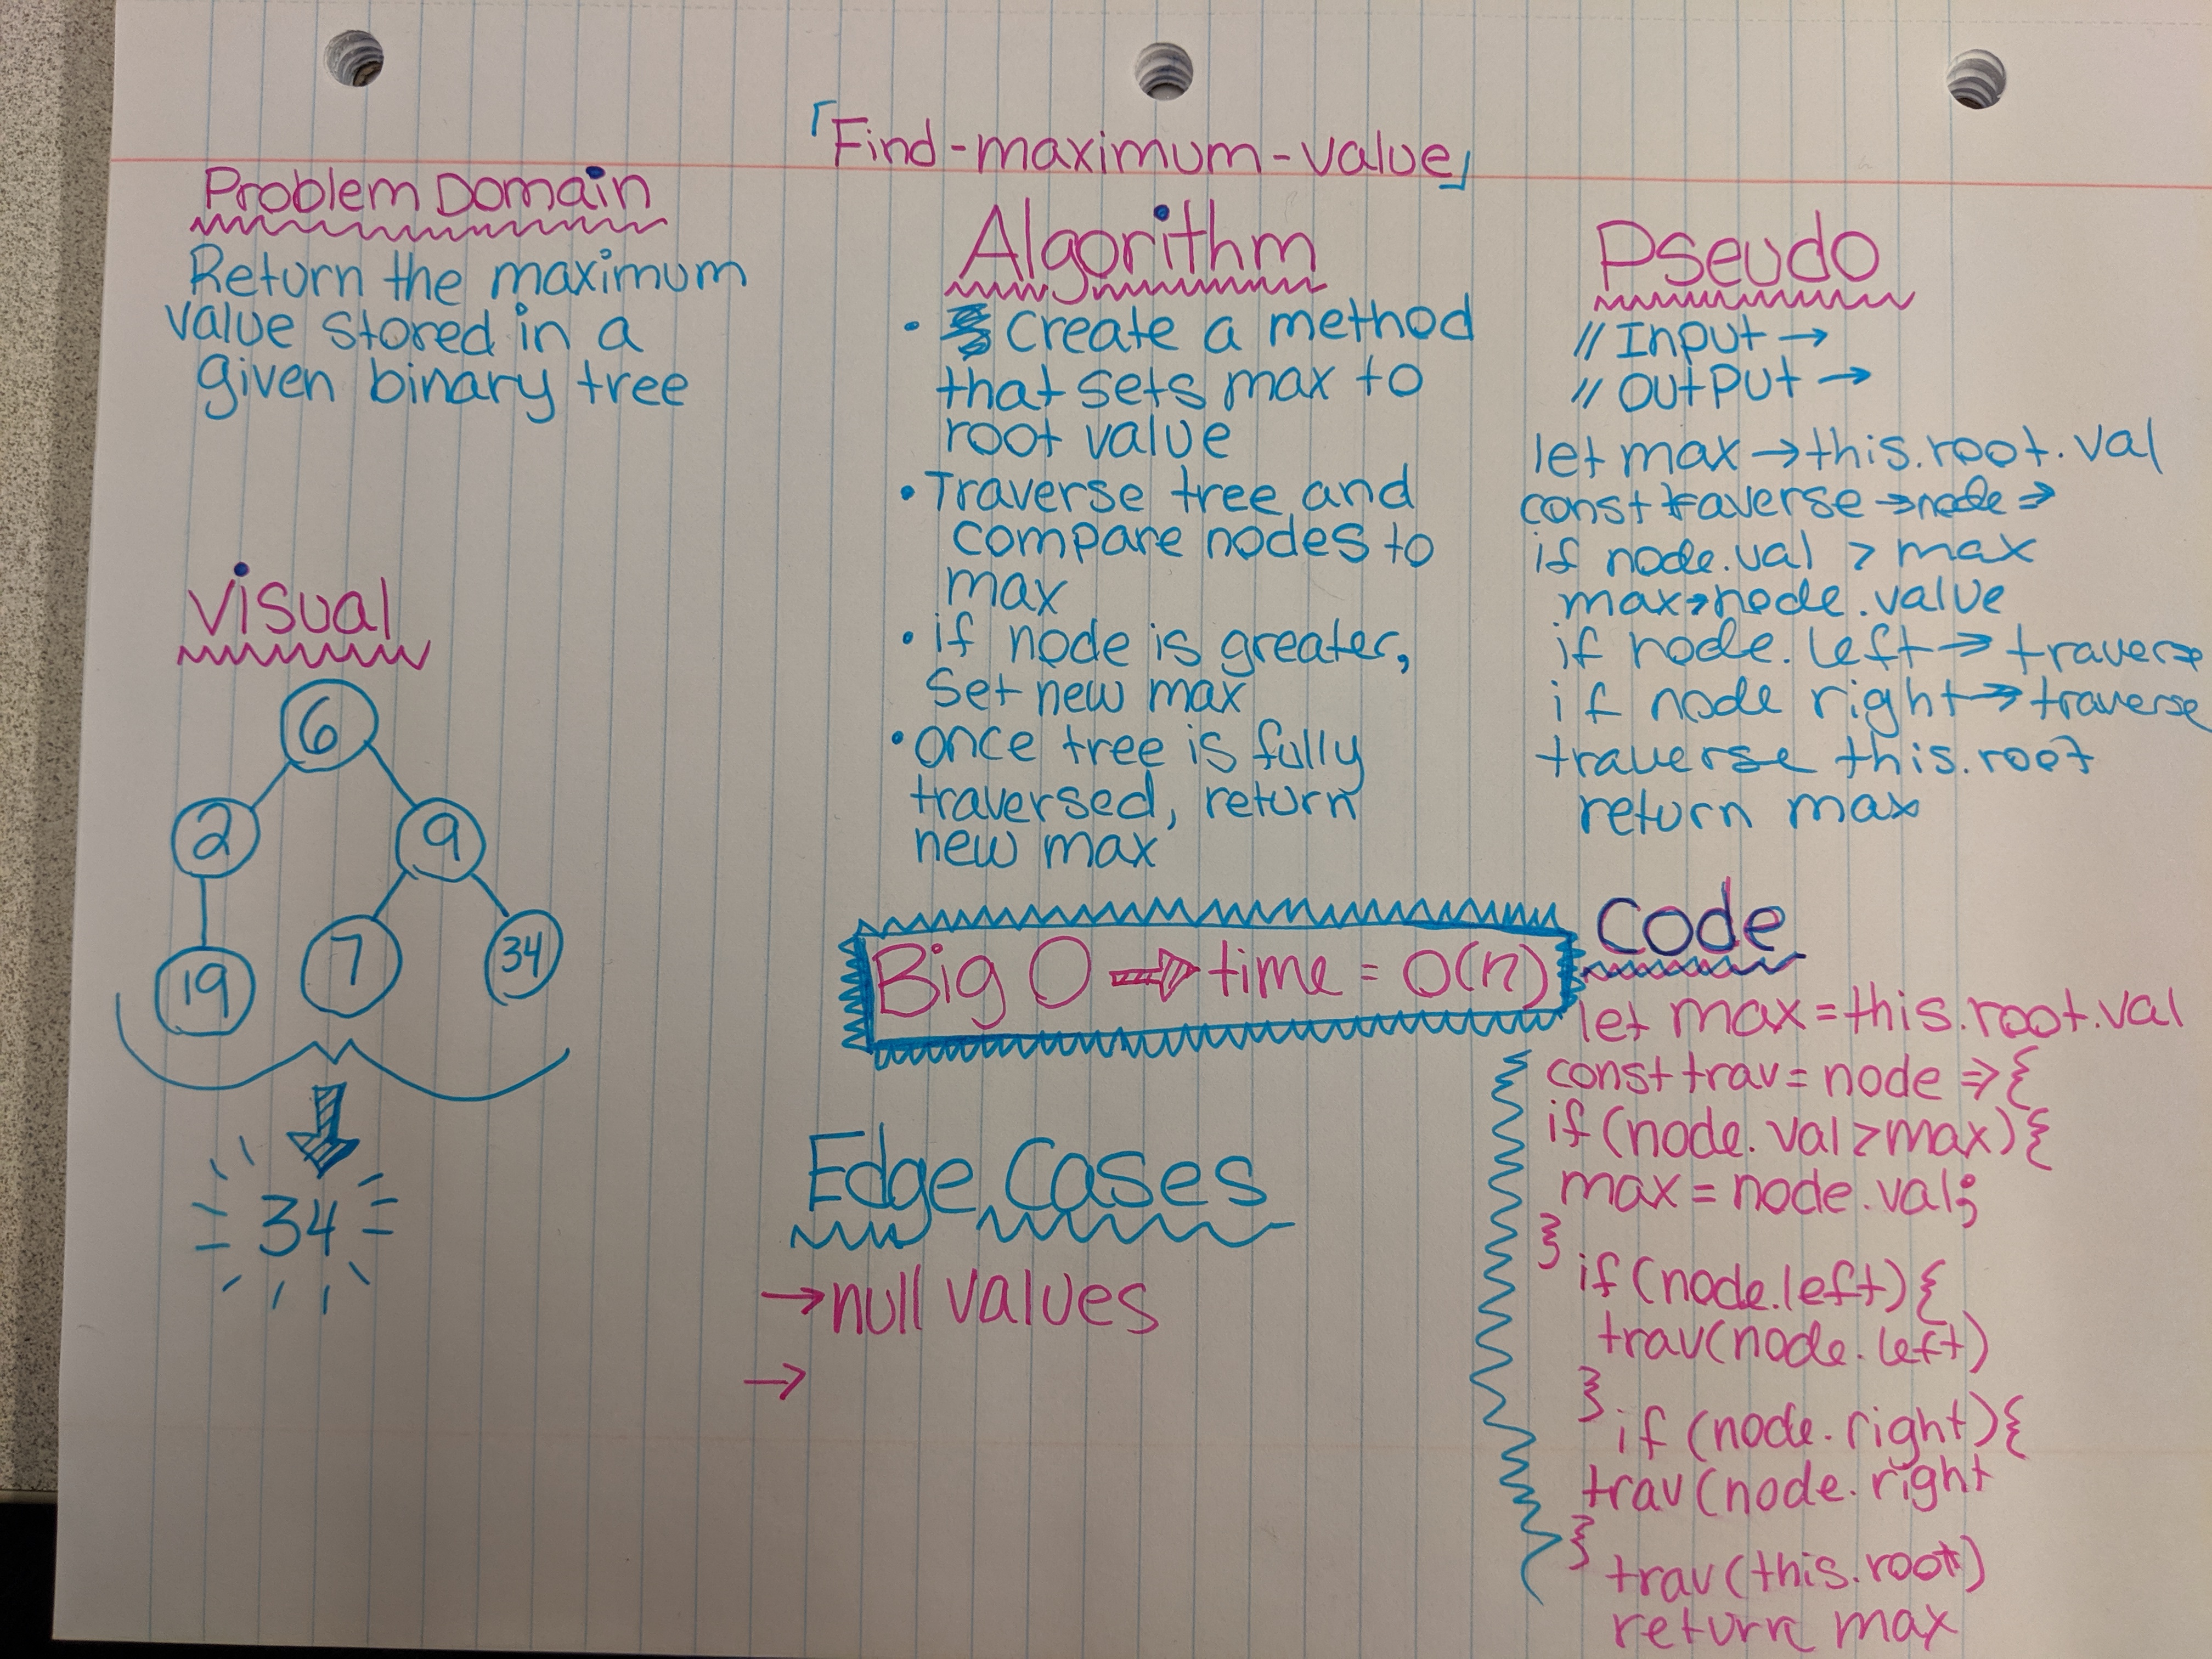 「Find-maximum-value」
Problem Domain
Return the maximum
value stored in a
given binary tree
Visual
6
2
9
19
7
34
34
Algorithm
• Create a method
that sets max to
root value
• Traverse tree and
compare nodes to
max
• if node is greater,
set new max
• once tree is fully
traversed, return
new max
Big O → time = O(n)
Edge Cases
→ null values
→
Pseudo
// Input →
// Output →
let max → this.root.val
const traverse → node ⇒
if node.val > max
max → node.value
if node.left → traverse
if node right → traverse
traverse this.root
return max
Code
let max = this.root.val
const trav = node => {
if (node.val > max) {
max = node.val;
} if (node.left) {
trav(node.left)
} if (node.right) {
trav(node.right
} trav(this.root)
return max